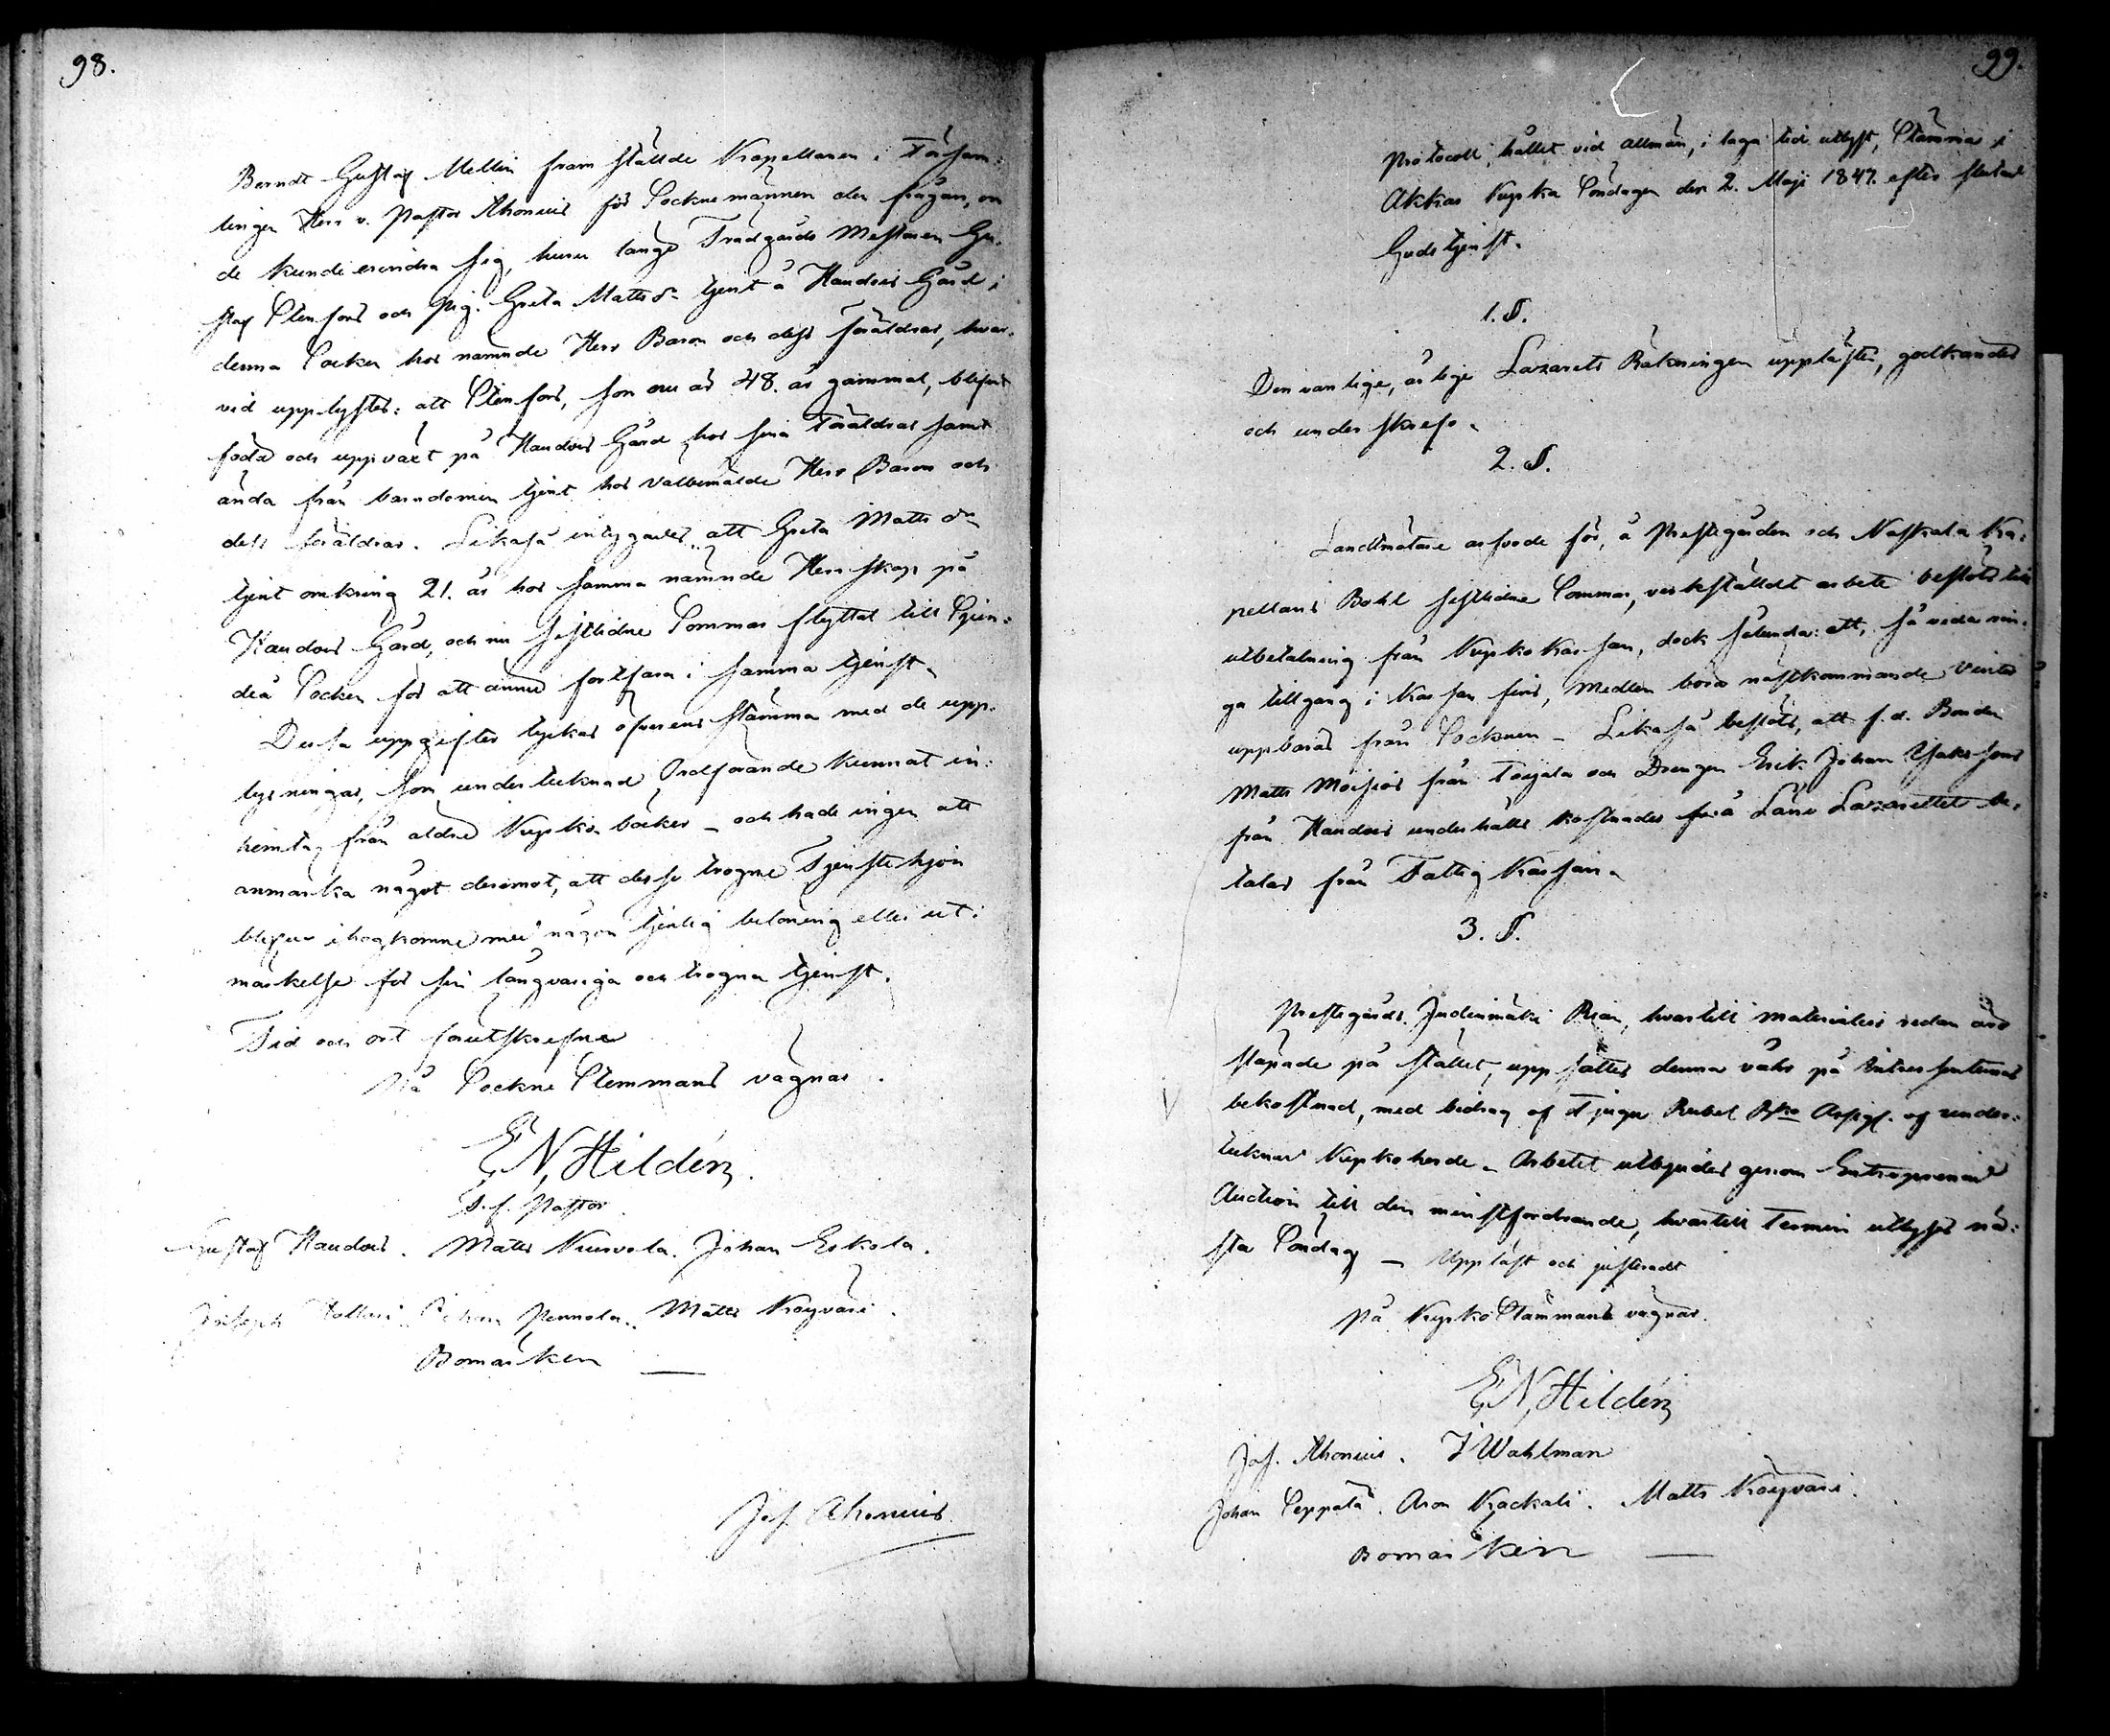 98.
Berndt Gustaf Mellin fram ställde Kapellanen i Församlingen
lingen Herr v. Pastor Ahonius för Sockne männen den frågan, om
de kunde erindra sig, huru länge Trädgårds Mestaren Gu-
staf Stenfors och Pig. Greta Matts dr tjent å Haudois Gård i
denna Socken hos nämnde Herr Baron och dess föräldrar, hvar-
vid upplystes: att Stenfors, som nu är 48. år gammal, blifvit
född och uppväxt på Haudois Gård hos sina Föräldrar samt
ända från barndomen tjent hos välbemälde Herr Baron och
dess föräldrar. Likaså intygades, att Greta Matts dr
tjent omkring 21. år hos samma nämnde Herrskap på
Haudois Gård, och nu sistlidne Sommar flyttat till
Socken för att ännu fortfara i samma tjenst.
Dessa uppgifter tyckas öfverens stämma med de upp-
lysningar, som undertecknad Ordförande kunnat in-
hemta från äldre Kyrko-böcker – och hade ingen att
anmärka något deremot, att desse trogne Tjenstehjon
blefve ihogkomne med någon tjenlig belöning eller ut-
märkelse för sin långvariga och trogna tjenst.
Tid och ort förutskrefne
På Sockne Stemmans vägnar.
E, N, Hildén.
T. f. Pastor
Gustaf Haudois. Matts Kuusvola. Johan Eskola.
Joseph Johan Pennola. Matts Köyväri.
Bomärken —
Jos. Ahonius
99.
Protocoll, hållet vid allmän, i laga tid utlyst, Stämma i
Akkas Kyrka Söndagen den 2. Maji 1847. efter slutad
Gudstjenst.
1. §.
Den vanlige, årlige Lazarets Räkningen upplästes, godkändes
och underskrefs.
2. §.
Landtmätare arfvode för, å Prestegården och Naskala Ka-
pellans Bohl sistlidne Sommar, verkställdt arbete bestods till
utbetalning från Kyrko Kassan, dock sålunda: att, så vida nin-
ga tillgång i Kassan fins, Medlen böra nästkommande Vinter
uppbäras från Socknen – Likaså bestöts, att f. d. Bonden
Matts Moisios från Toijala och Drengen Erik Johan Isakssons
från Haudois underhålls kostnader på Läns Lazarettet be-
talas från Fattig Kassan.
3. §.
Prestegårds Judinmäki Rian, hvartill materialier redan äro
släpade på stället, uppsättes denna våhr på Intressenternas
bekostnad, med bidrag af Tjugu Rubel af under-
tecknad Kyrkoherde – Arbetet utbjudes genom Entreprenad
Auction till den minstfordrande, hvartill Termin utlyses nä-
sta Söndag – Uppläst och justeradt
På Kyrko Stämmans vägnar.
E, N, Hildén
Jos. Ahonius. J Wahlman
Johan Seppälä. Aron Kackali. Matts Köyväri.
Bomärken —